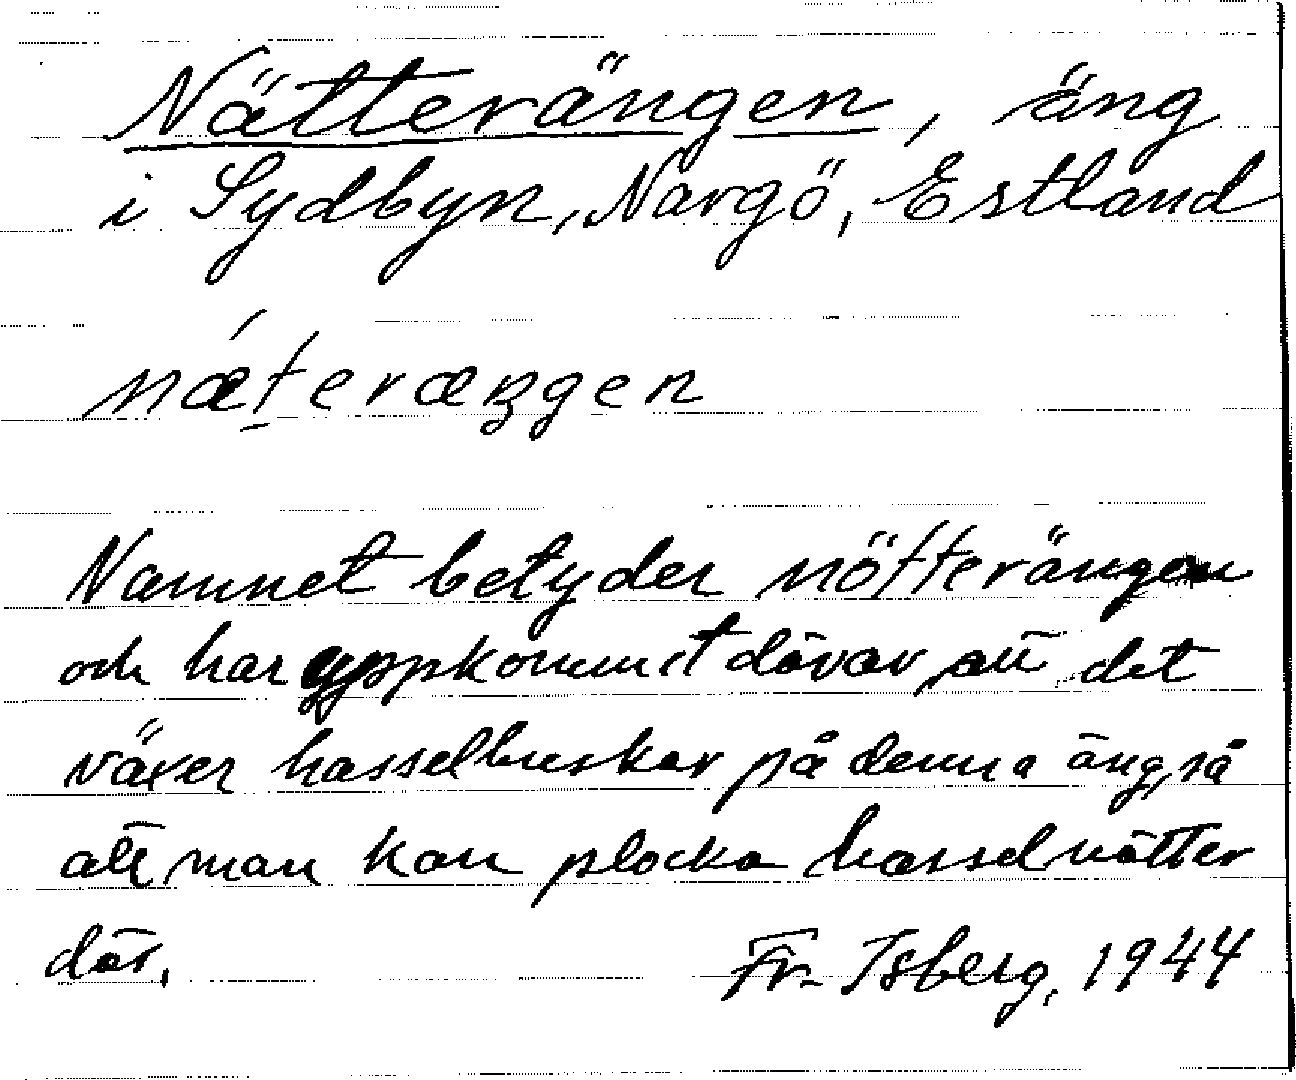 Nätterängen, äng
i Sydbyn, Nargö, Estland
nǽt̠eræŋgen
Namnet betyder nötterängen
och har uppkommit därav, att det
växer hasselbuskar på denna äng, så
att man kan plocka hasselnötter
där.
Fr. Isberg, 1944